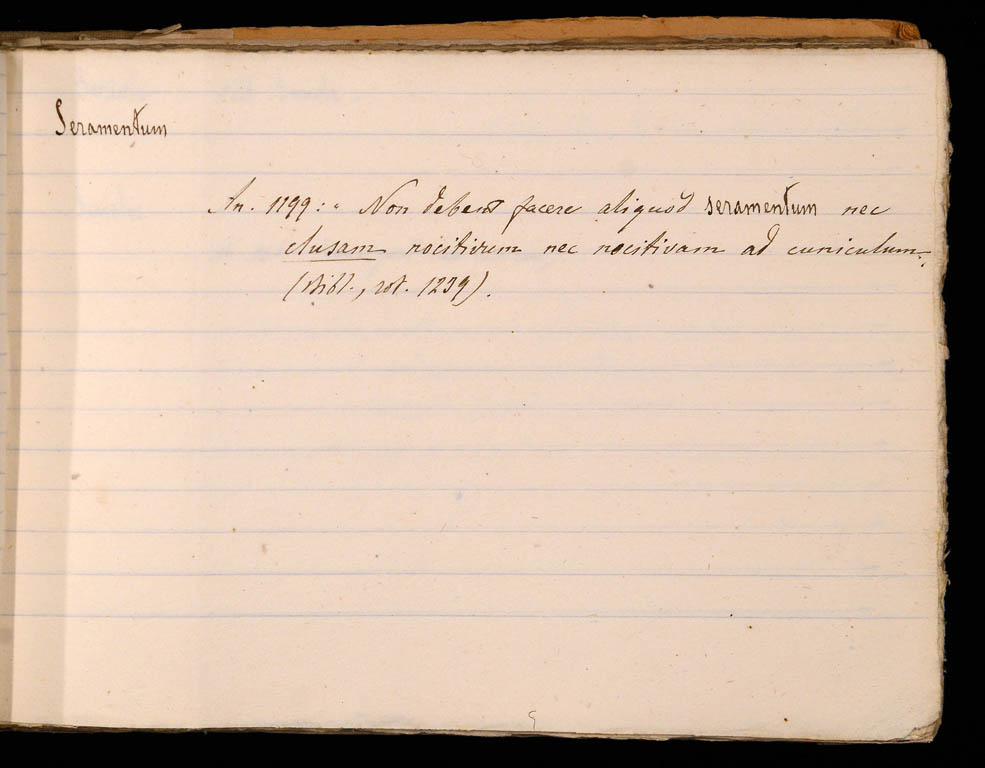 Seramentum
An. 1199: " Non debent facere aliquod seramentum nec
clusam nocitivum nec nocitivam ad cuniculum.
(Bibl., rot. 1239).